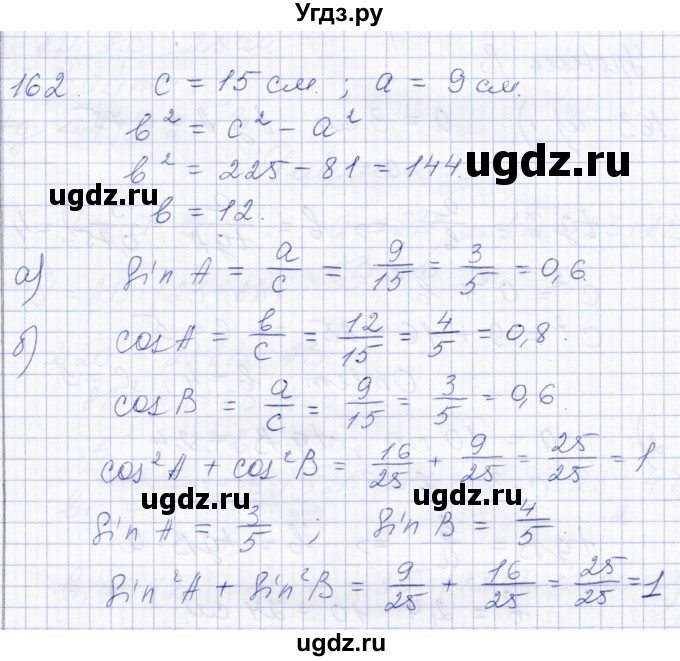 Угдз.ру
162. c = 15 см. ; a = 9 см.
b² = c² - a²
b² = 225 - 81 = 144.
ugdz.ru
ugdz.ru
b = 12.
а) sin A = a/c = 9/15 = 3/5 = 0,6.
б) cos A = b/c = 12/15 = 4/5 = 0,8.
cos B = a/c = 9/15 = 3/5 = 0,6
cos²A + cos²B = 16/25 + 9/25 = 25/25 = 1
ugdz.ru
ugdz.ru
sin A = 3/5 ; sin B = 4/5.
sin²A + sin²B = 9/25 + 16/25 = 25/25 = 1
ugdz.ru